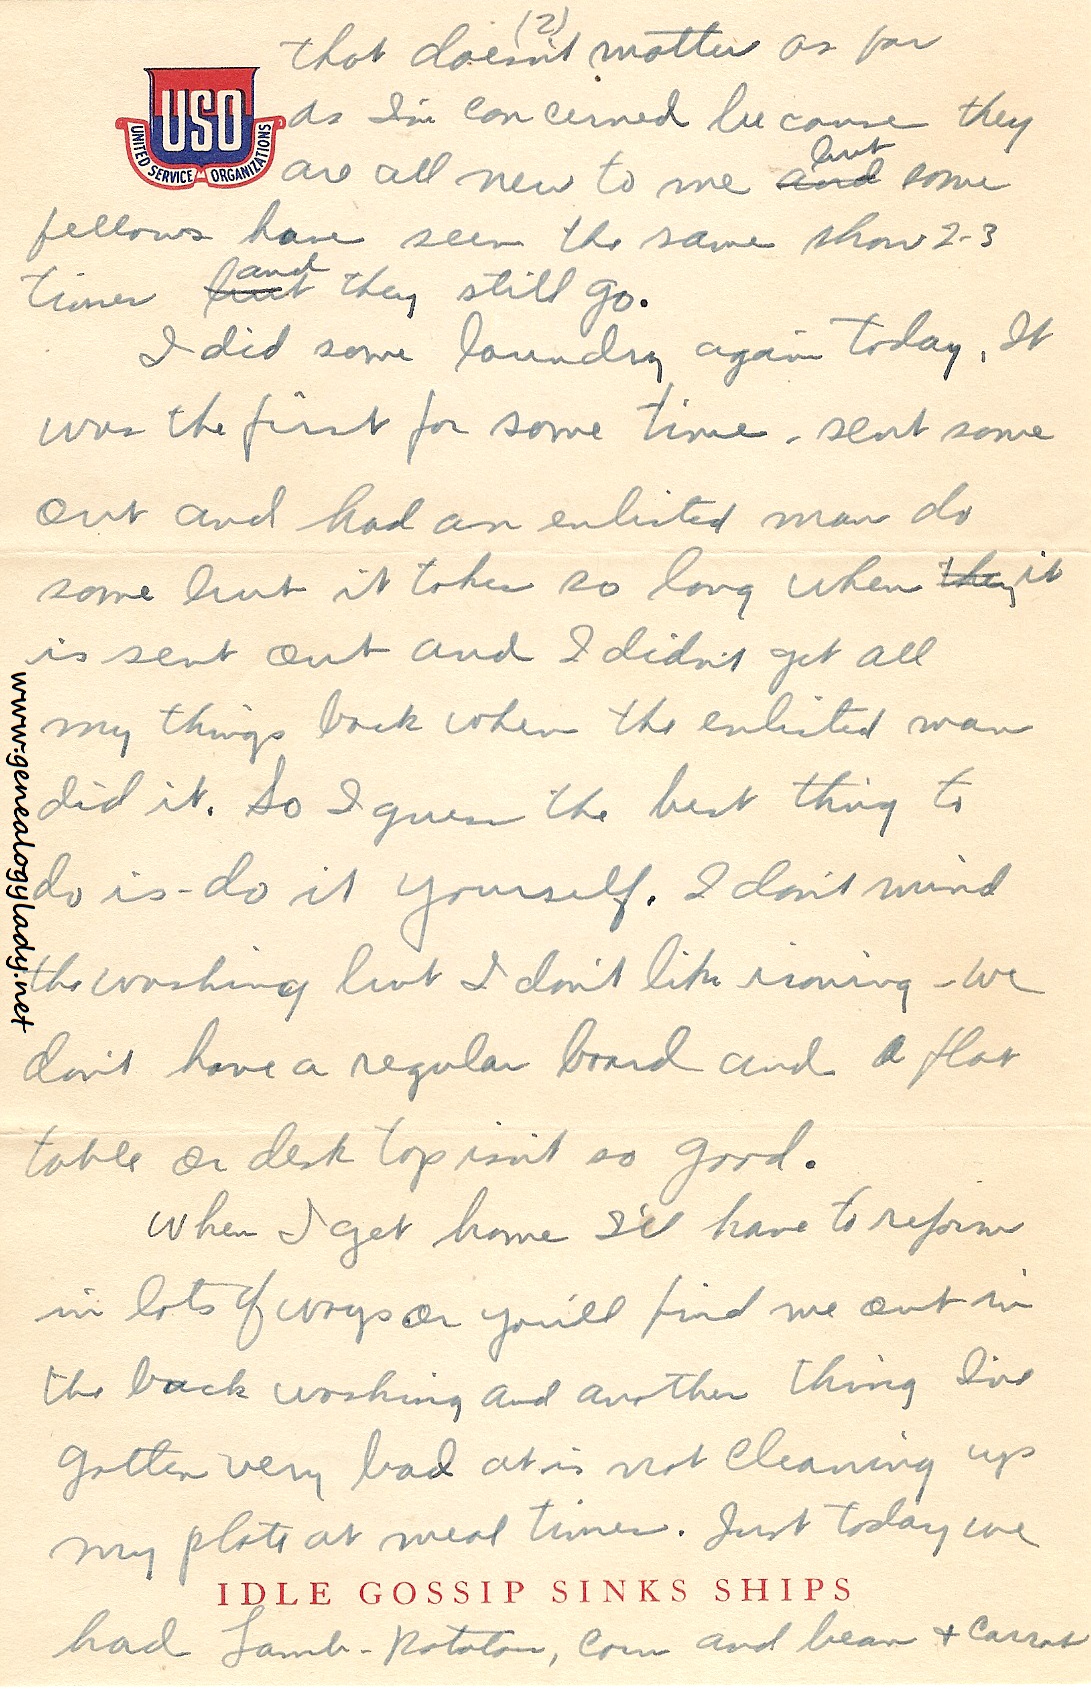 (2)
that doesn't matter as far
USO
UNITED SERVICE ORGANIZATIONS
as I'm concerned because they
are all new to me ~~and~~ but some
fellows have seen the same show 2-3
times ~~but~~ and they still go.
I did some laundry again today. It
was the first for some time - sent some
out and had an enlisted man do
some but it takes so long when ~~they~~ it
is sent out and I didn't get all
my things back when the enlisted man
did it. So I guess the best thing to
do is - do it yourself. I don't mind
the washing but I don't like ironing - we
don't have a regular board and a flat
table or desk top isn't so good.
When I get home I'll have to reform
in lots of ways or you'll find me out in
the back washing and another thing I've
gotten very bad at is not cleaning up
my plate at meal times. Just today we
IDLE GOSSIP SINKS SHIPS
had Lamb - potatoes, corn and bean + carrot
www.genealogylady.net